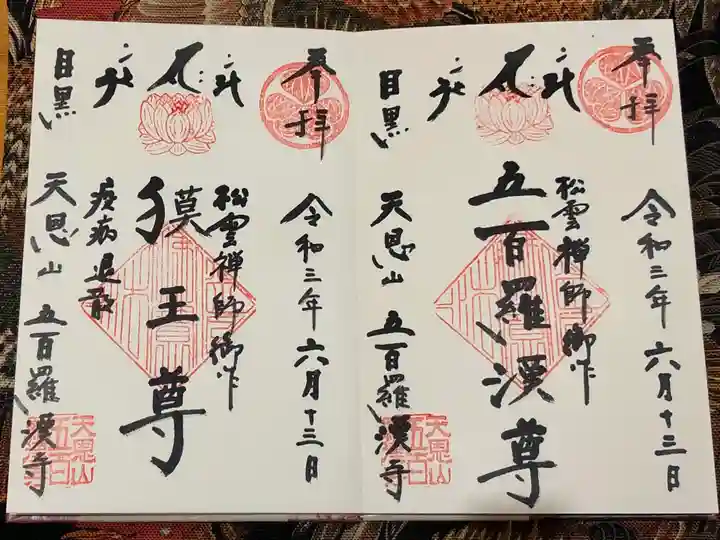 奉拝
令和三年六月十三日
松雲禅師御作
五百羅漢尊
目黒
天恩山 五百羅漢寺
天恩山
五百
奉拝
令和三年六月十三日
松雲禅師御作
獏王尊
疫病退散
目黒
天恩山 五百羅漢寺
天恩山
五百